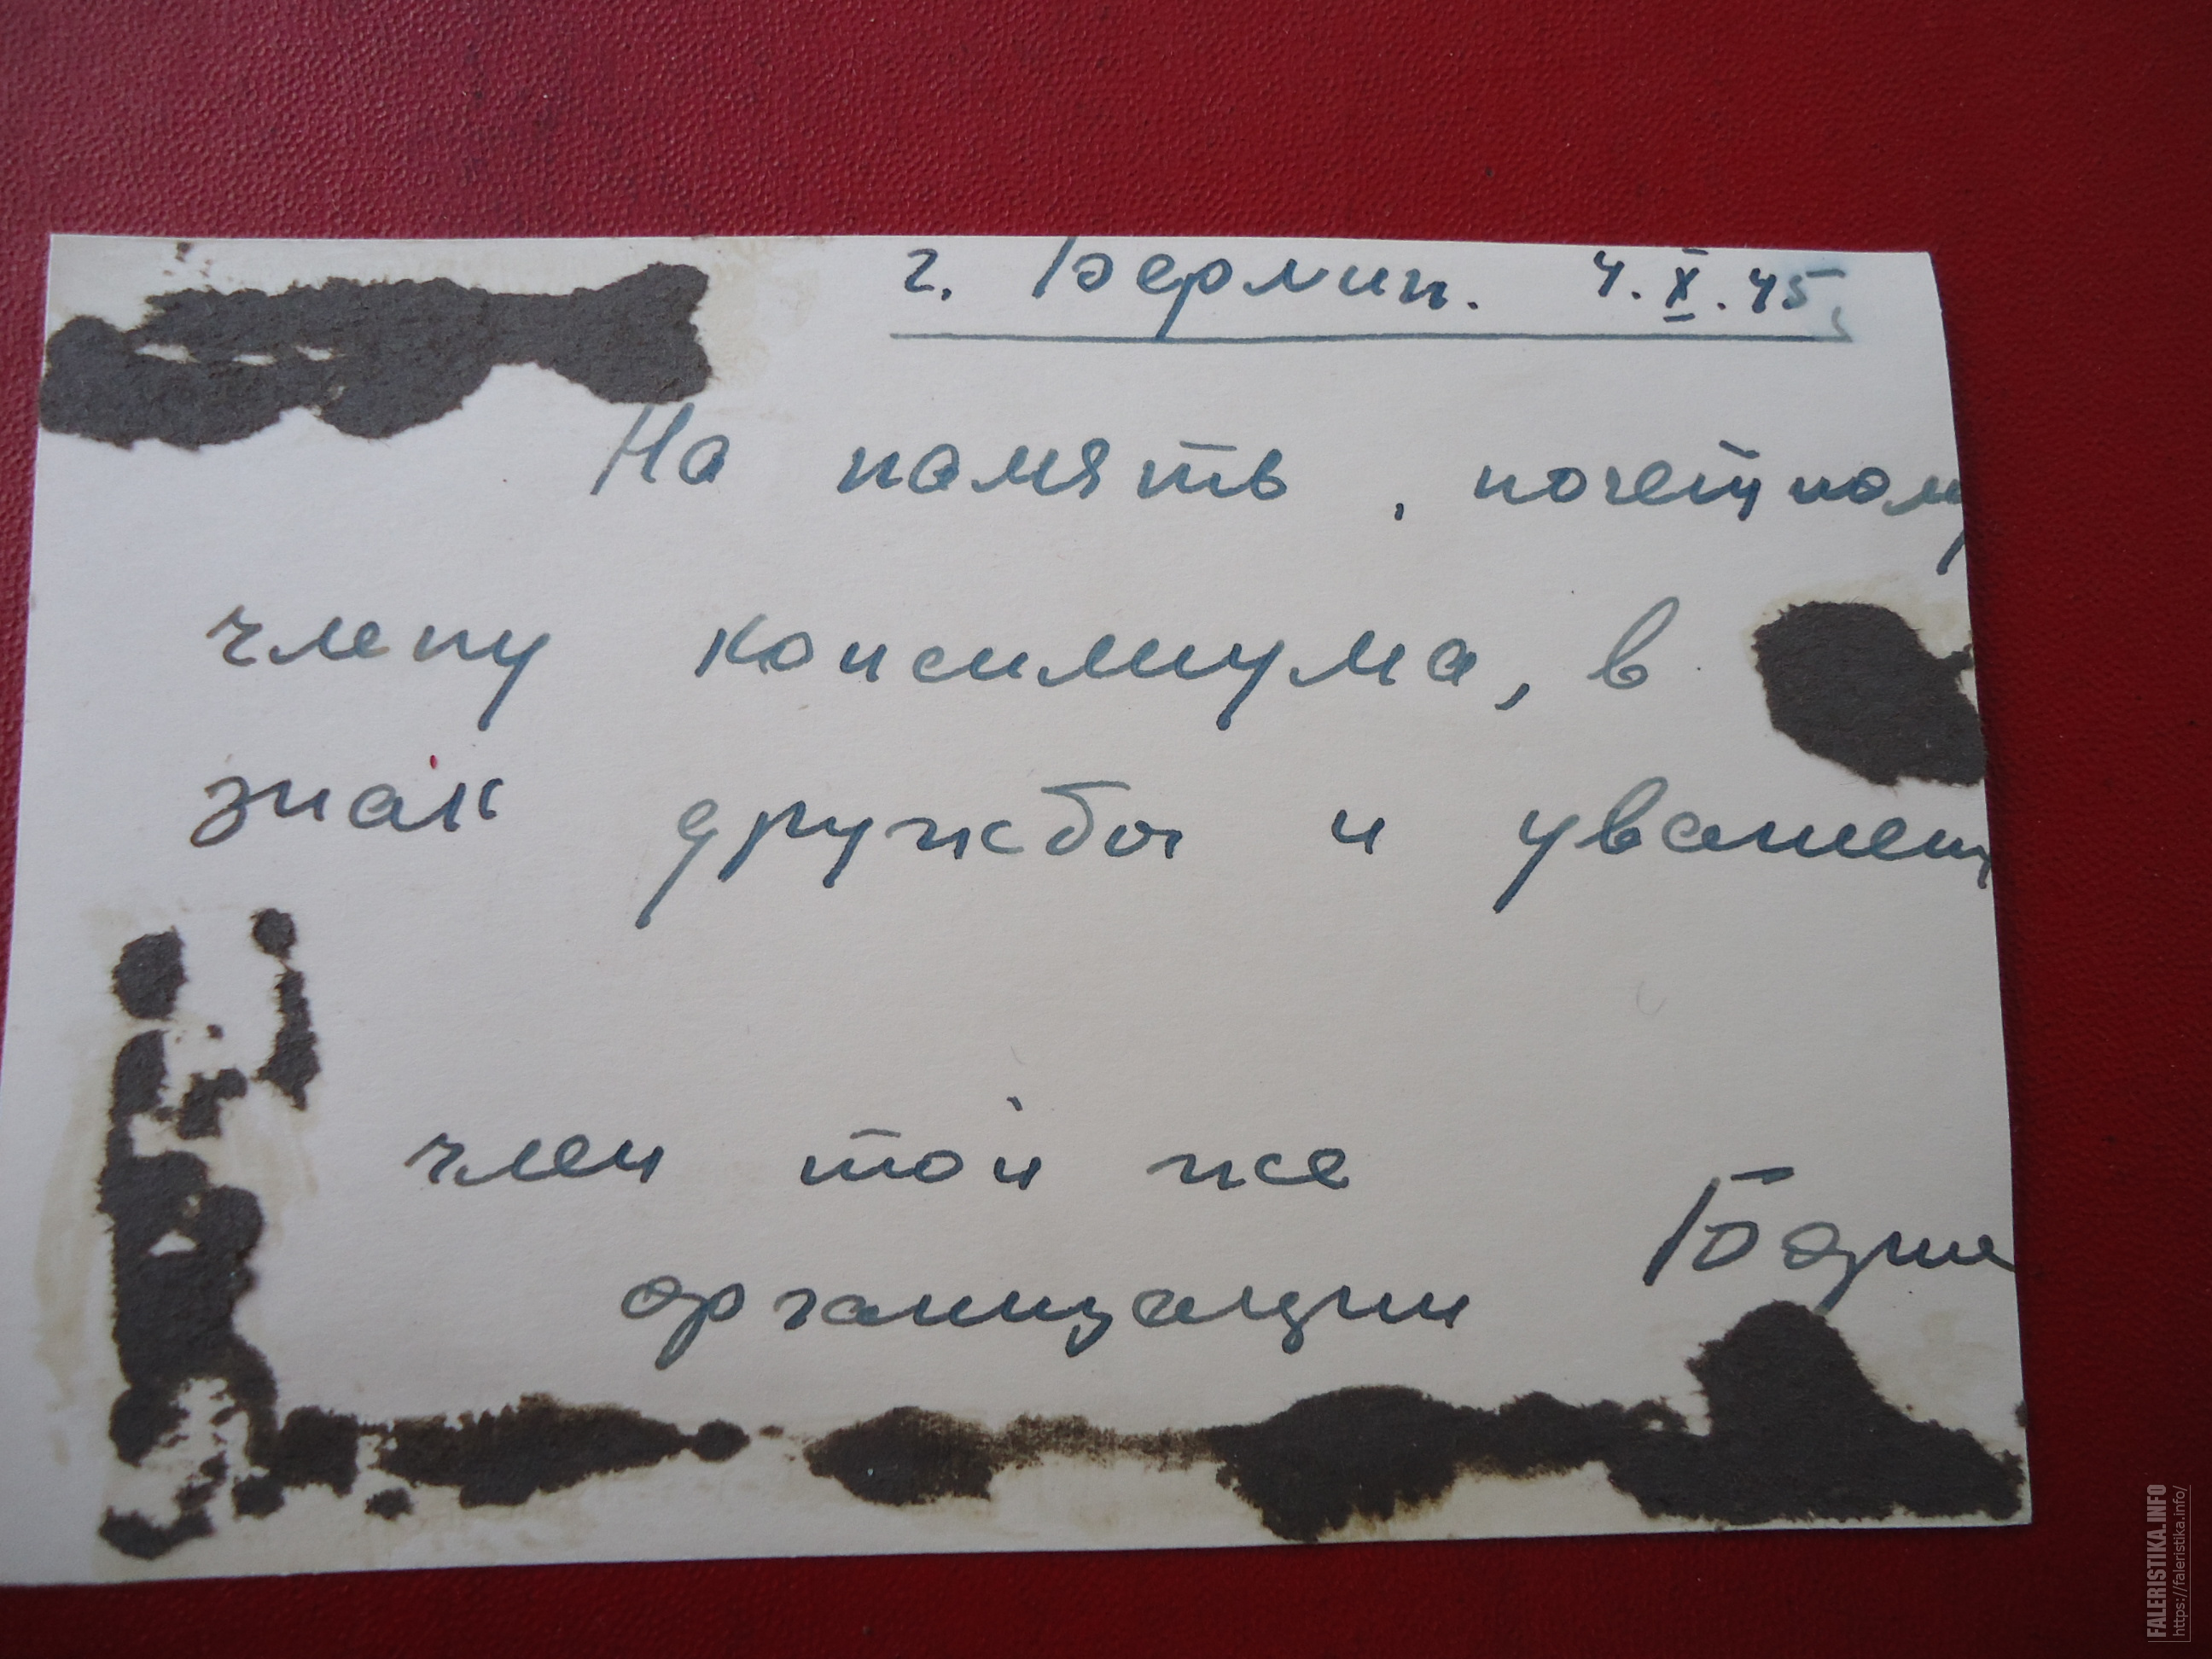 г. Берлин. 4.X.45
На память, почетному
члену консилиума, в
знак дружбы и уважени
член той же
организации
FALERISTIKA.INFO
https://faleristika.info/